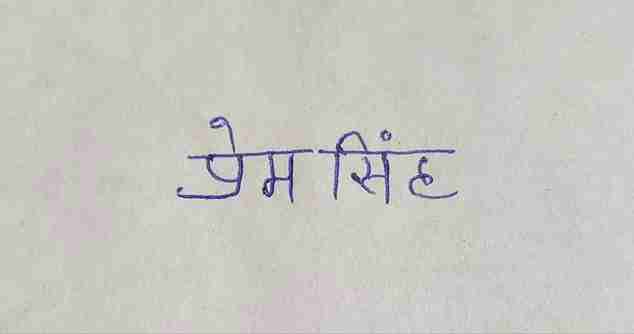 प्रेम सिंह